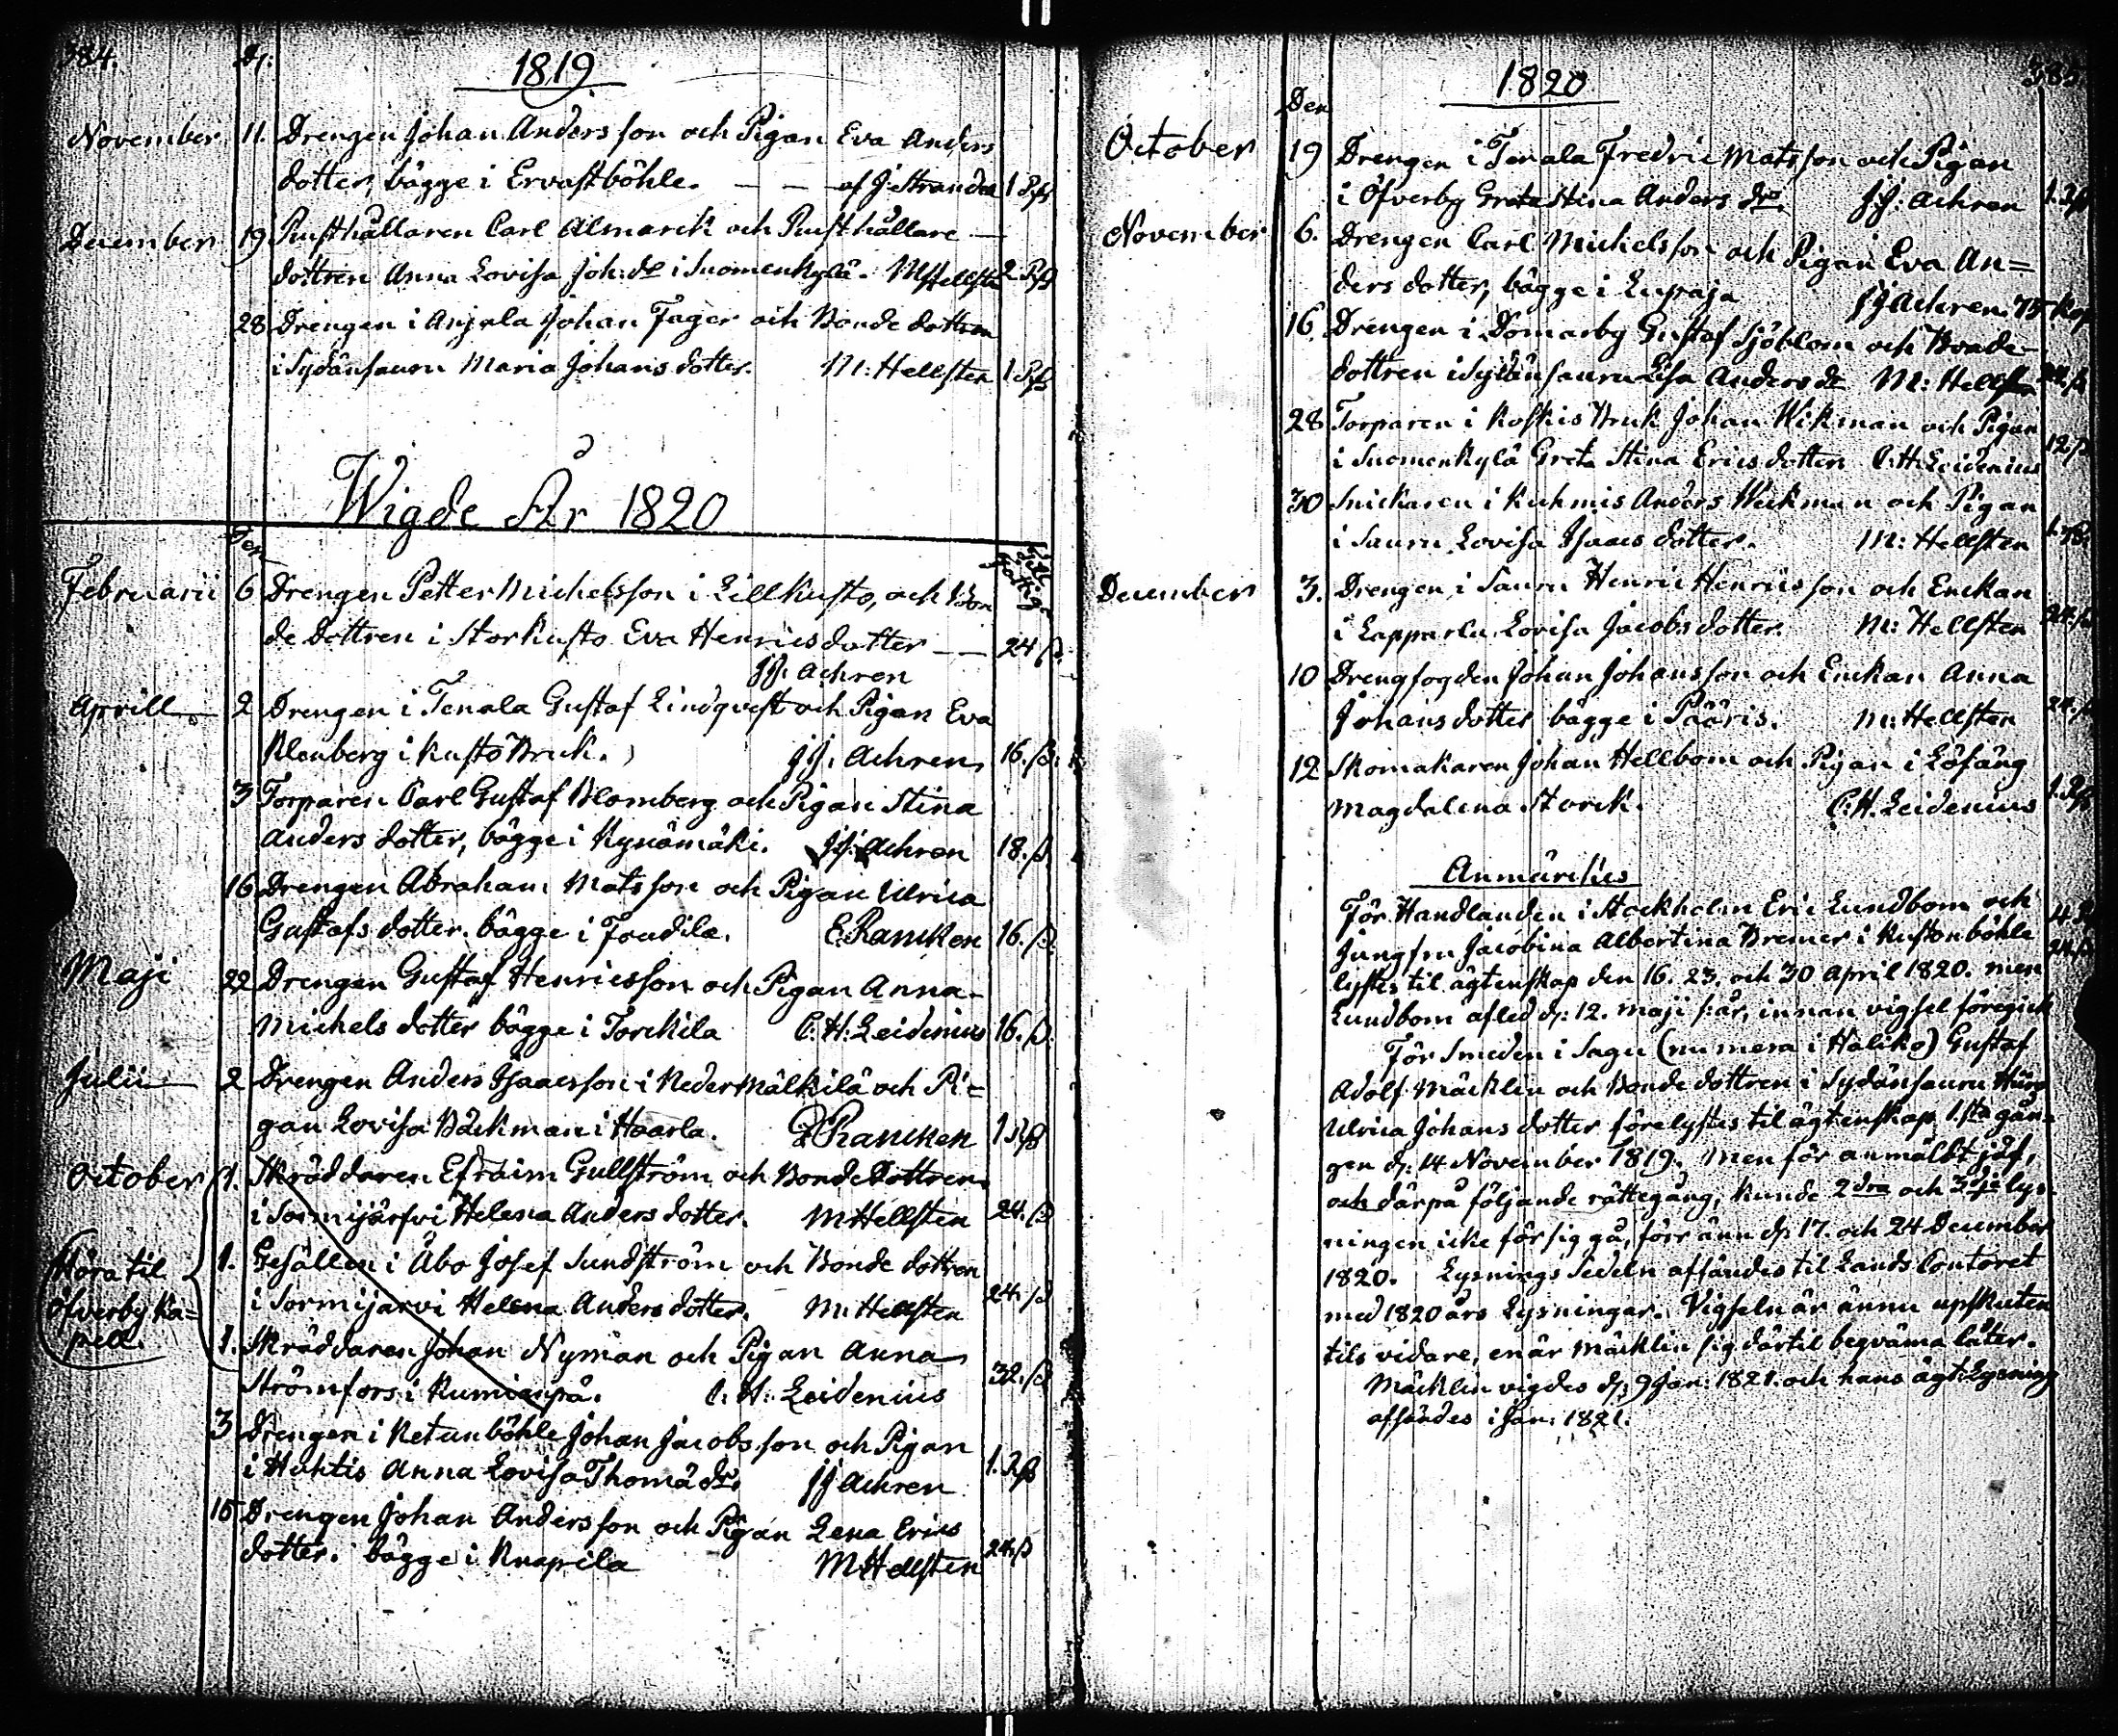 384.
Dj:
1819.
November 11. Drengen Johan Andersson och Pigan Eva Anders
dotter, bägge i Ervastböhle. — — af J. Strander 1 Rß
December 19 Rusthållaren Carl Almark och Rusthållare —
dottren Anna Lovisa Joh: dr i Suomenkylä. M Hellsten 2 Rß
28 Drengen i Anjala Johan Fager och Bonde dottren
i Sydänsauru Maria Johans dotter. M: Hellsten 1 Rß
Wigde År 1820
Den
Februarii 6 Drengen Petter Michelsson i Lillkusto, och Bon
de dottren i Storkusto Eva Henrics dotter — — 24 ß.
JJ: Achren
Aprill 2 Drengen i Tenala Gustaf Lindqvest och Pigan Eva
Klenberg i Kusto Bruk. JJ. Achren 16. ß.
3 Torparen Carl Gustaf Blomberg och Pigan Stina
Anders dotter, bägge i Kynämäki. JJ: Achren 18. ß
16 Drengen Abraham Matsson och Pigan Ulrica
Gustafs dotter. bägge i Fondila. E. Rancken 16. ß.
Maji 22 Drengen Gustaf Henricsson och Pigan Anna
Michels dotter bägge i Torckila C. H: Leidenius 16. ß.
Julii 2 Drengen Anders Isaacsson i Nedermälkilä och Pi=
gan Lovisa Bäckman i Haarla. E Rancken 1 Rß
October 1. Skräddaren Efraim Gullström och Bonde Dottren
i Sormijärfvi Helena Anders dotter. M Hellsten 24. ß
1. Gesällen i Åbo Josef Sundström och Bonde dottren
Höra til
i Sormijarvi Helena Anders dotter. M: Hellsten 24. ß
öfverby Ka=
pell.
1. Skräddaren Johan Nyman och Pigan Anna
Strömfors i Rumianpä. C. H: Leidenius 32. ß
3 Drengen i Ketunböhle Johan Jacobsson och Pigan
i Huhtis Anna Lovisa Thomä dr. JJ Achren 1. Rß
15 Drengen Johan Andersson och Pigan Lena Erics
dotter. bägge i Knapila M Hellsten 24. ß
1820
385.
Den
October 19 Drengen i Tenala Fredric Matsson och Pigan
i Öfverby Greta Stina Anders dr. JJ: Achren 1. Rß
November 6. Drengen Carl Michelsson och Pigan Eva An=
ders dotter, bägge i Lupaja JJ Achren 75 Kop
16. Drengen i Domarby Gustaf Sjöblom och Bonde-
dottren i Sydänsauru Lisa Anders dr M: Hellsten 24. ß
28 Torparen i Koskis Bruk Johan Wikman och Pigan
i Suomenkylä Greta Stina Erics dotter C. H. Leidenius 12 ß
30 Snickaren i Kuhmis Anders Weckman och Pigan
i Sauru Lovisa Isaacs dotter. M: Hellsten
December 3. Drengen i Sauru Henric Henricsson och Enckan
i Lapparla Lovisa Jacobs dotter. M: Hellsten 24. ß
10 Drengfogden Johan Johansson och Enckan Anna
Johans dotter bägge i Pääris. M: Hellsten 24. ß
12 Skomakaren Johan Hellbom och Pigan i Löfäng
Magdalena Storck. C. H. Leidenius 1. Rß
Anmärckes
För Handlanden i Stockholm Eric Lundbom och
Jungfru Jacobina Albertina Bremer i Kustonböhle
lystes til ägtenskap den 16. 23. och 30 April 1820. men
Lundbom afled d: 12. Maji s: år, innan vigsel föregick
För Smeden i Sagu (numera i Haliko) Gustaf
Adolf Mäcklin och Bonde dottren i Sydänsauru
Ulrica Johans dotter förelystes til ägtenskap 1sta gån-
gen d: 14 November 1819. Men för anmäldt jäf,
och därpå följande rättegång, kunde 2dra och 3dje lys-
ningen icke försiggå, förr änn d: 17. och 24 December
1820. Lysnings Sedeln afsändes til Lands Contoret
med 1820 års Lysningar. Vigseln är ännu upskuten
tils vidare, enär Mäcklin sig därtil beqväma låter.
Mäcklin vigdes d: 9 Jan: 1821. och hans ägt: Lysning
afsändes i Jan: 1821.